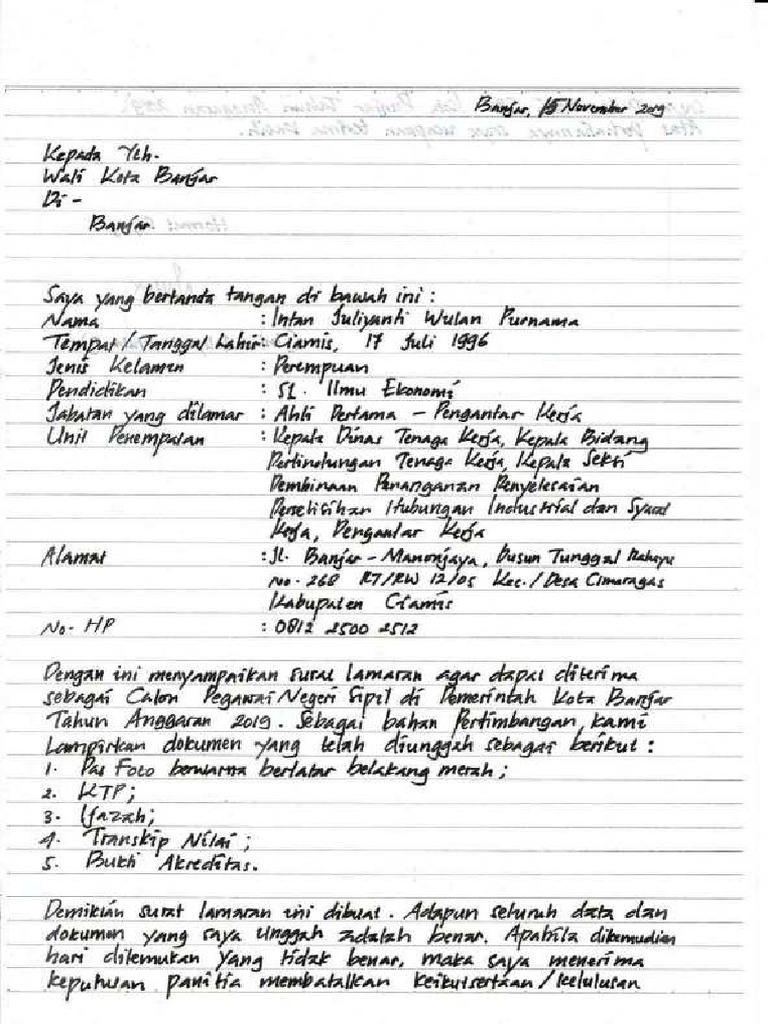 Banjar, 15 November 2019
Kepada Yth.
Wali Kota Banjar
Di -
Banjar
Saya yang bertanda tangan di bawah ini :
Nama : Intan Juliyanti Wulan Purnama
Tempat / Tanggal Lahir : Ciamis, 17 Juli 1996
Jenis Kelamin : Perempuan
Pendidikan : S1. Ilmu Ekonomi
Jabatan yang dilamar : Ahli Pertama - Pengantar Kerja
Unit Penempatan : Kepala Dinas Tenaga Kerja, Kepala Bidang
Perlindungan Tenaga Kerja, Kepala Seksi
Pembinaan Penanganan Penyelesaian
Perselisihan Hubungan Industrial dan Syarat
Kerja, Pengantar Kerja
Alamat : Jl. Banjar - Manonjaya, Dusun Tunggal Rahayu
No. 268 RT/RW 12/05 Kec. / Desa Cimaragas
Kabupaten Ciamis
No. HP : 0812 2500 2512
Dengan ini menyampaikan surat lamaran agar dapat diterima
sebagai Calon Pegawai Negeri Sipil di Pemerintah Kota Banjar
Tahun Anggaran 2019. Sebagai bahan Pertimbangan, kami
Lampirkan dokumen yang telah diunggah sebagai berikut :
1. Pas Foto berwarna berlatar belakang merah ;
2. KTP;
3. Ijazah;
4. Transkip Nilai ;
5. Bukti Akreditas.
Demikian surat lamaran ini dibuat. Adapun seluruh data dan
dokumen yang saya unggah adalah benar. Apabila dikemudian
hari ditemukan yang tidak benar, maka saya menerima
keputusan panitia membatalkan keikutsertaan / kelulusan